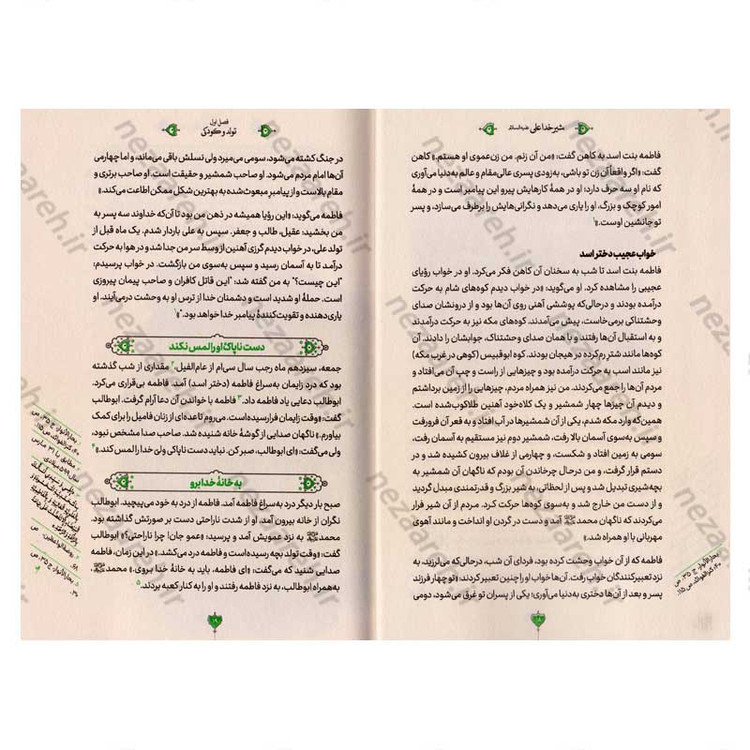 شیر خدا علی علیه‌السلام
فاطمه بنت اسد به کاهن گفت: «من آن زنم. من زن‌عموی او هستم.» کاهن
گفت: «اگر واقعاً آن زن تو باشی، به‌زودی پسری عالی‌مقام و عالم به‌دنیا می‌آوری
که نام او سه حرف دارد؛ او در همهٔ کارهایش پیرو این پیامبر است و در همهٔ
امور کوچک و بزرگ، او را یاری می‌دهد و نگرانی‌هایش را برطرف می‌سازد، و پسر
تو جانشین اوست.»۱
خواب عجیب دختر اسد
فاطمه بنت اسد تا شب به سخنان آن کاهن فکر می‌کرد. او در خواب رؤیای
عجیبی را مشاهده کرد. او می‌گوید: «در خواب دیدم کوه‌های شام به حرکت
درآمده بودند و درحالی‌که پوششی آهنی روی آن‌ها بود و از درونشان صدای
وحشتناکی برمی‌خاست، پیش می‌آمدند. کوه‌های مکه نیز به حرکت درآمدند
و به استقبال آن‌ها رفتند و با همان صدای وحشتناک، جوابشان را دادند. آن
کوه‌ها مانند شتر رم‌کرده در هیجان بودند. کوه ابوقبیس (کوهی در غرب مکه)
نیز مانند اسب به حرکت درآمده بود و چیزهایی از راست و چپ آن می‌افتاد و
مردم آن‌ها را جمع می‌کردند. من نیز همراه مردم، چیزهایی را از زمین برداشتم
و دیدم آن چیزها چهار شمشیر و یک کلاه‌خود آهنین طلاکوب‌شده است.
همین‌که وارد مکه شدم، یکی از آن شمشیرها در آب افتاد و به قعر آن فرورفت
و سپس به‌سوی آسمان بالا رفت، شمشیر دوم نیز مستقیم به آسمان رفت،
سومی به زمین افتاد و شکست، و چهارمی از غلاف بیرون کشیده شد و در
دستم قرار گرفت، و من درحال چرخاندن آن بودم که ناگهان آن شمشیر به
بچه‌شیری تبدیل شد و پس از لحظاتی، به شیر بزرگ و قدرتمندی مبدل گردید
و از دست من خارج شد و به‌سوی کوه‌ها حرکت کرد. مردم از آن شیر فرار
می‌کردند که ناگهان محمد ﷺ آمد و دست در گردن او انداخت و مانند آهوی
مهربانی با او همراه شد.»
فاطمه که از آن خواب وحشت کرده بود، فردای آن شب، درحالی‌که می‌لرزید، به
نزد تعبیرکنندگان خواب رفت. آن‌ها خواب او را چنین تعبیر کردند: «تو چهار فرزند
پسر و بعد از آن‌ها دختری به‌دنیا می‌آوری؛ یکی از پسران تو غرق می‌شود، دومی
۱. بحارالأنوار، ج ۳۵، ص
۴۰؛ کنزالفوائد، ص ۱۱۵.
۱۸
فصل اول
تولد و کودکی
در جنگ کشته می‌شود، سومی می‌میرد ولی نسلش باقی می‌ماند، و اما چهارمی
آن‌ها امام مردم می‌شود. او صاحب شمشیر و حقیقت است. او صاحب برتری و
مقام بالاست و از پیامبر مبعوث‌شده به بهترین شکل ممکن اطاعت می‌کند.»
فاطمه می‌گوید: «این رؤیا همیشه در ذهن من بود تا آن‌که خداوند سه پسر به
من بخشید: عقیل، طالب و جعفر. سپس به علی باردار شدم. یک ماه قبل از
تولد علی، در خواب دیدم گرزی آهنین از وسط سر من جدا شد و در هوا به حرکت
درآمد تا به آسمان رسید و سپس به‌سوی من بازگشت. در خواب پرسیدم:
"این چیست؟" به من گفته شد: "این قاتل کافران و صاحب پیمان پیروزی
است. حملهٔ او شدید است و دشمنان خدا از ترس او به وحشت درمی‌آیند. او
یاری‌دهنده و تقویت‌کنندهٔ پیامبر خدا خواهد بود."»۱
دست ناپاک او را لمس نکند
جمعه، سیزدهم ماه رجب سال سی‌اُم از عام‌الفیل.۲ مقداری از شب گذشته
بود که درد زایمان به‌سراغ فاطمه (دختر اسد) آمد. فاطمه بی‌قراری می‌کرد.
ابوطالب دعایی یاد فاطمه داد.۳ فاطمه با خواندن آن دعا آرام گرفت. ابوطالب
گفت: «وقت زایمان فرارسیده‌است. می‌روم تا عده‌ای از زنان فامیل را برای کمک
بیاورم.» ناگهان صدایی از گوشهٔ خانه شنیده شد. صاحب صدا مشخص نبود،
ولی می‌گفت: «ای ابوطالب، صبر کن. نباید دست ناپاکی ولی خدا را لمس کند.»۴
به خانهٔ خدا برو
صبح بار دیگر درد به‌سراغ فاطمه آمد. فاطمه از درد به خود می‌پیچید. ابوطالب
نگران از خانه بیرون آمد. او از شدت ناراحتی دست بر صورتش گذاشته بود.
محمد ﷺ به نزد عمویش آمد و پرسید: «عمو جان! چرا ناراحتی؟» ابوطالب
گفت: «وقت تولد بچه رسیده‌است و فاطمه درد می‌کشد.» در این زمان، فاطمه
صدایی شنید که می‌گفت: «ای فاطمه، باید به خانهٔ خدا بروی.» محمد ﷺ
به‌همراه ابوطالب، به نزد فاطمه رفتند و او را به کنار کعبه بردند.۵
۱. بحارالأنوار، ج ۳۵، ص
۲. مطابق با ۳۱ مارس
۱۹
nezaareh.ir